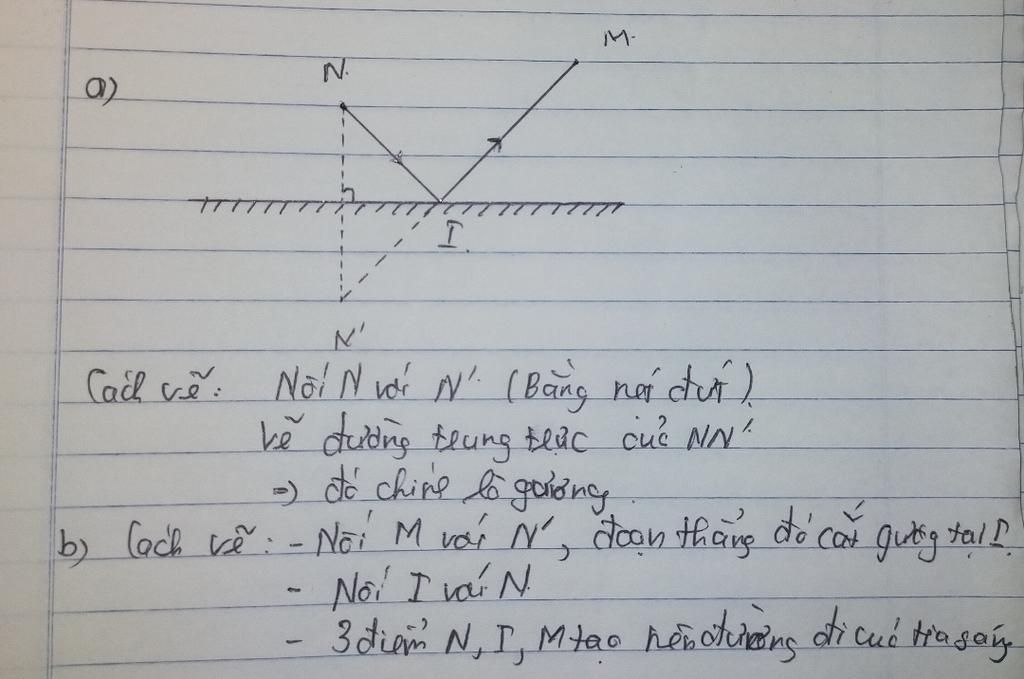 M.
N.
a)
I.
N'
Cách vẽ: Nối N với N' (Bằng nét đứt)
Vẽ đường trung trực của NN'
=> đó chính là gương.
b) Cách vẽ: - Nối M với N', đoạn thẳng đó cắt gương tại I.
- Nối I với N.
- 3 điểm N, I, M tạo nên đường đi của tia sáng